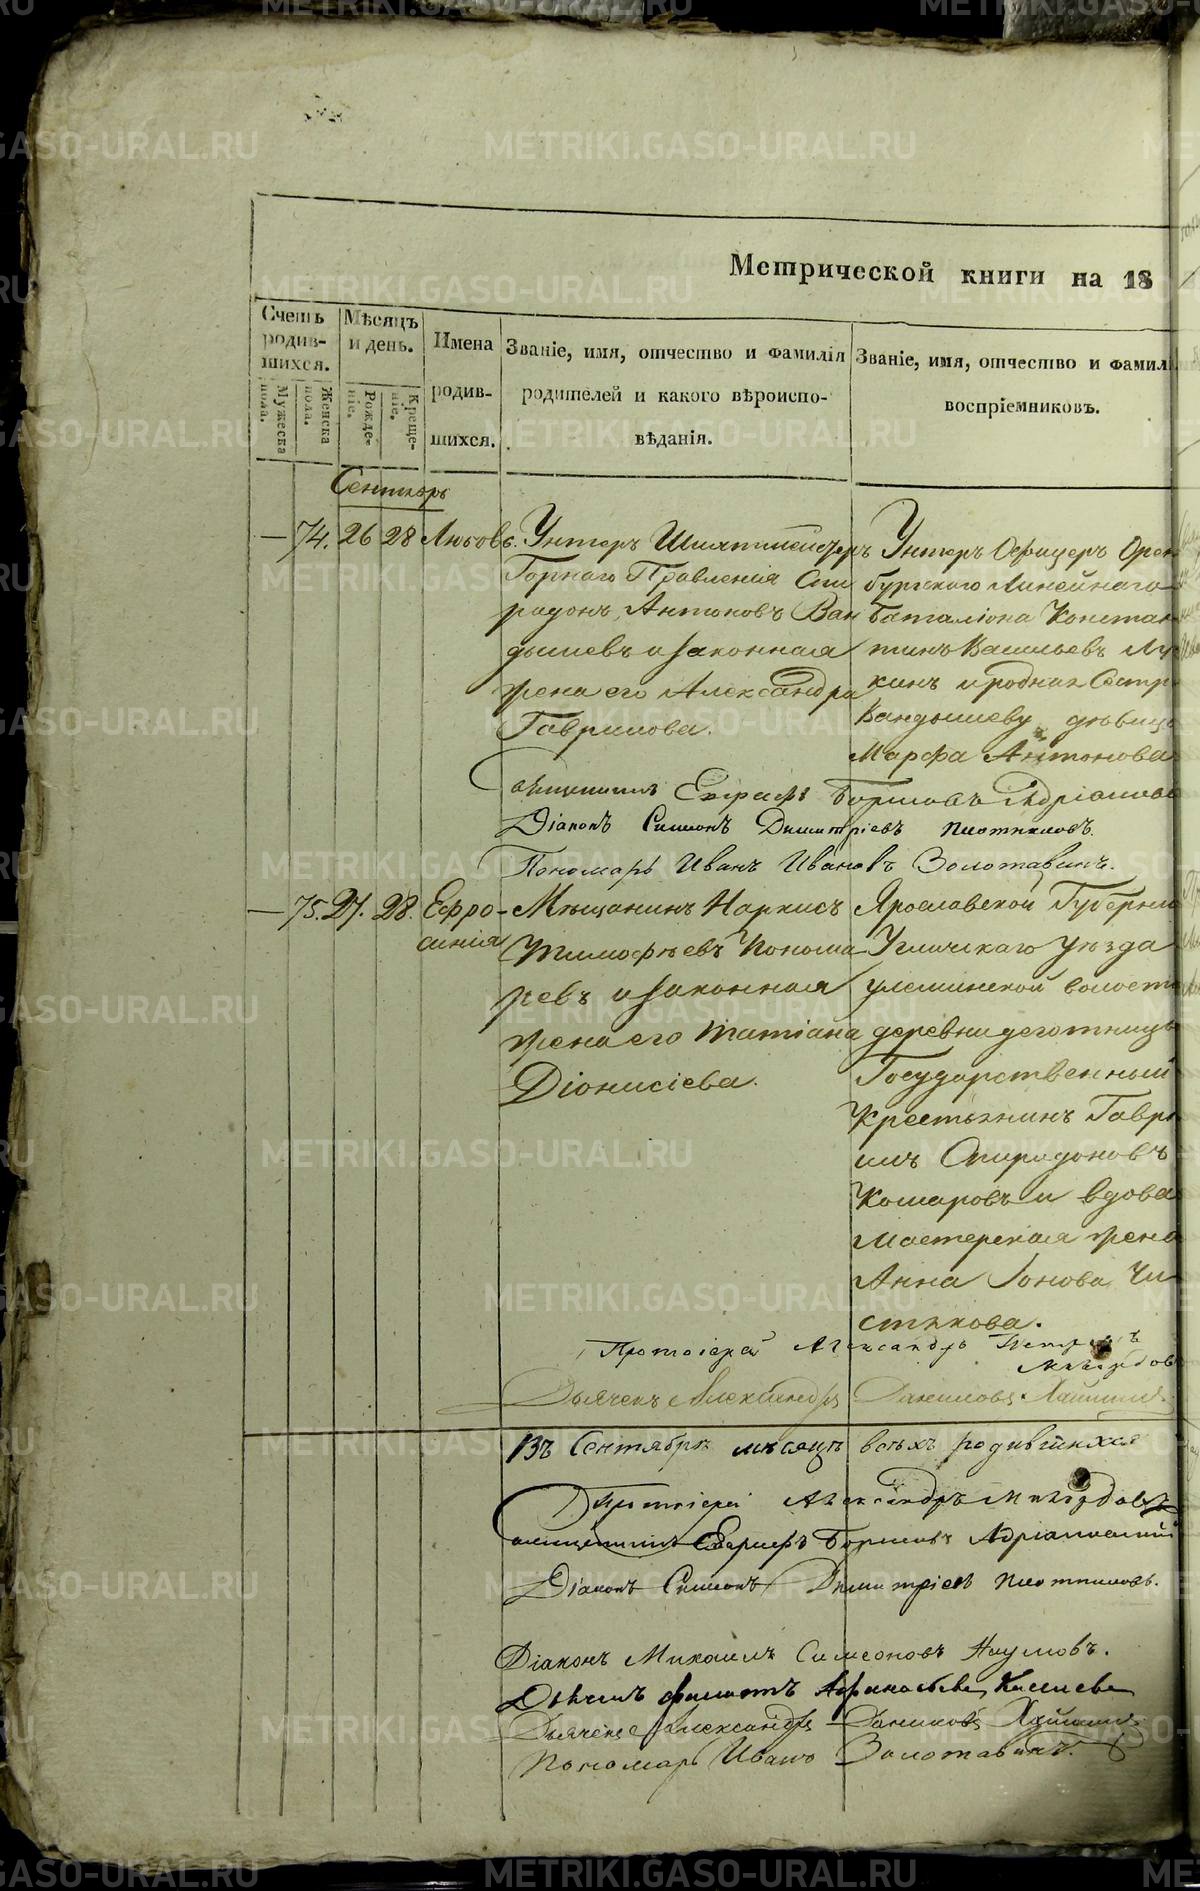 Метрической книги на 18
Счетъ родив-шихся.
Мужеска пола.
Женска пола.
Мѣсяцъ и день.
Рожде-ніе.
Креще-ніе.
Имена родив-шихся.
Званіе, имя, отчество и фамилія
родителей и какого вѣроиспо-
вѣданія.
Званіе, имя, отчество и фамилі
воспріемниковъ.
Сентябрь
— 74. 26 28 Любовь.
Унтеръ Шихтмейстеръ
Горнаго Правленія Спи
ридонъ Антоновъ Ван
дышевъ и законная
жена его Александра
Гаврилова.
Унтеръ Офицеръ Орен
бургскаго Линейнаго
Баталіона Констан
тинъ Васильевъ Лу
кинъ и родная Сестр
Вандышеву дѣвица
Марфа Антонова
Священникъ Евграфъ Борисовъ Адріановс
Діаконъ Симеонъ Димитріевъ Плотниковъ.
Пономарь Иванъ Ивановъ Золотавинъ.
— 75. 27. 28. Ефро-
синія
Мѣщанинъ Наркисъ
Тимофѣевъ Понома
ревъ и законная
жена его Татіана
Діонисіева.
Ярославской Губерніи
Угличскаго уѣзда
улеминской волости
деревни деготницъ
Государственный
Крестьянинъ Гаври
илъ Спиридоновъ
Комаровъ и вдова
мастерская жена
Анна Іонова Чи
стякова.
Протоіерей Александръ
Дьячекъ Александръ Даниловъ
Въ Сентябрѣ мѣсяцѣ всѣхъ родившихся
Протоіерей Александръ
Священникъ Евграфъ Борисовъ Адріановскій
Діаконъ Симеонъ Димитріевъ Плотниковъ.
Діаконъ Михаилъ Симеоновъ Наумовъ.
Дьячекъ Филиппъ
Дьячекъ Александръ Даниловъ
Пономарь Иванъ Золотавинъ.
METRIKI.GASO-URAL.RU